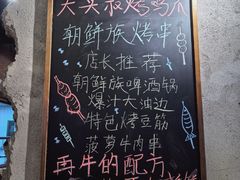 大头叔烤鸡爪
朝鲜族烤串
店长推荐
朝鲜族啤酒锅
爆汁大油边
特色烤豆筋
菠萝牛肉串
再牛的配方